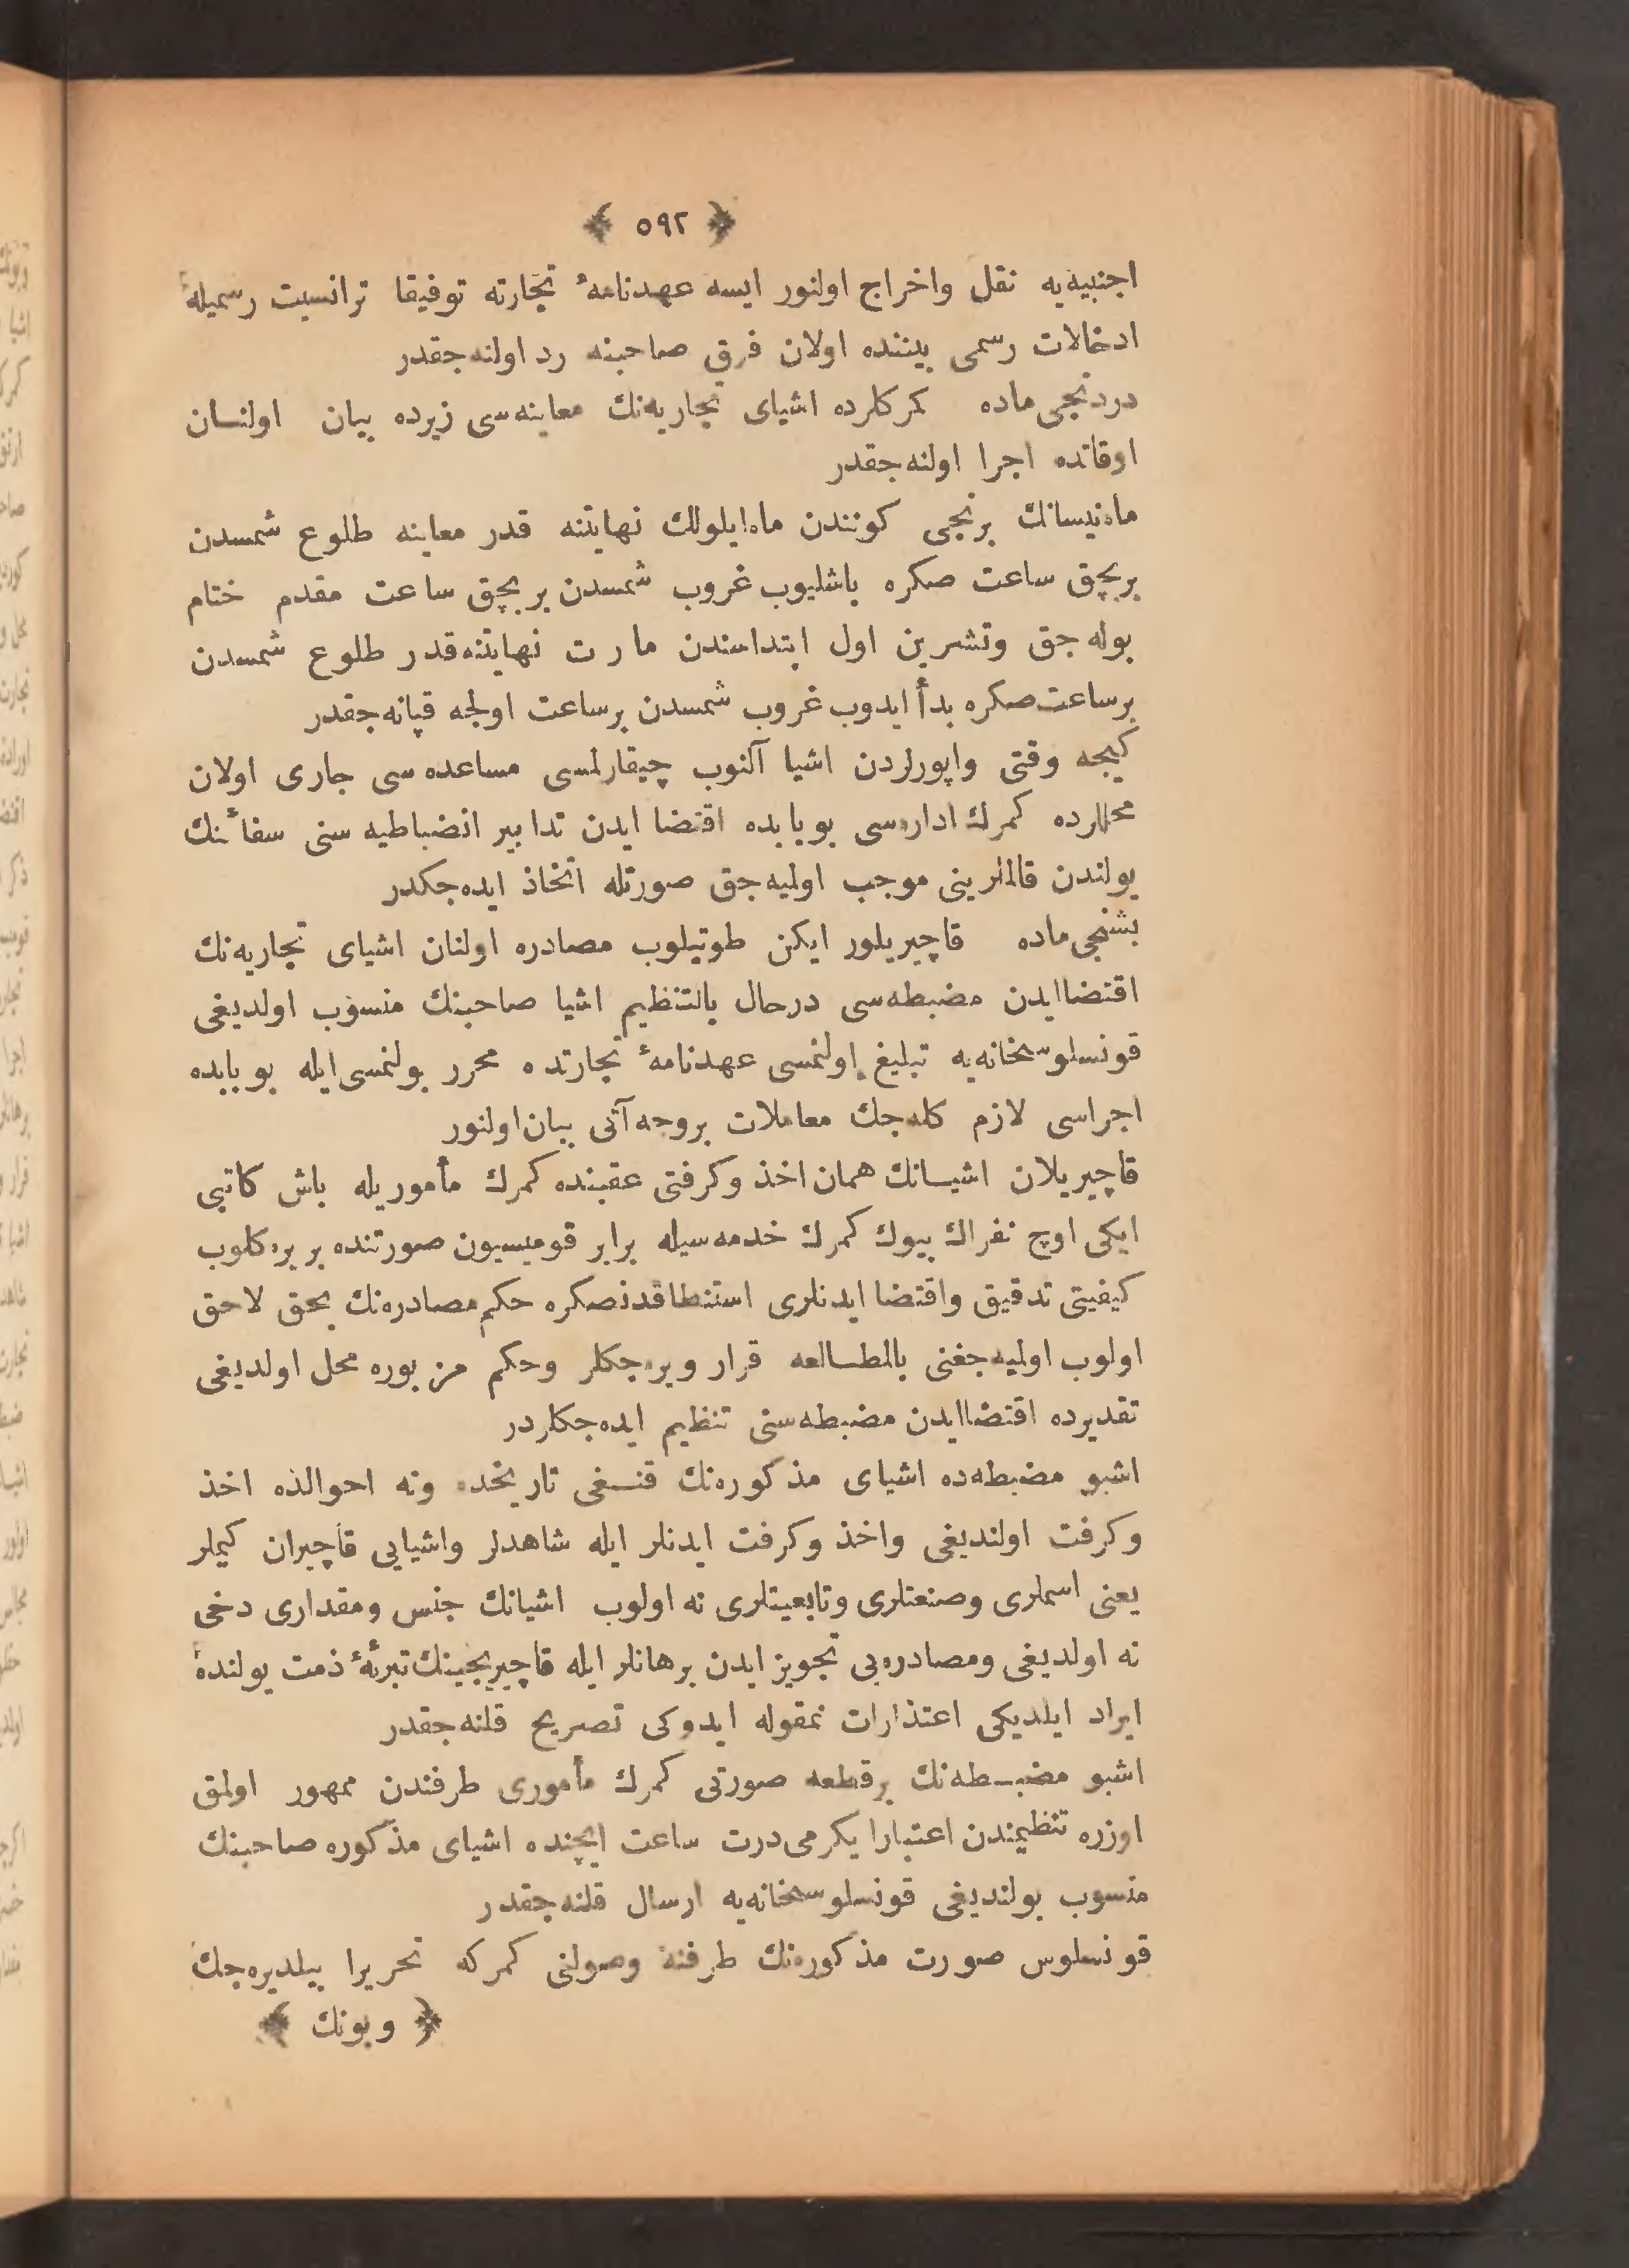 ﴿ ٥٩٢ ﴾
اجنبیه‌یه نقل واخراج اولنور ایسه عهدنامهٔ تجارته توفیقا ترانسیت رسمیله
ادخالات رسمی بیننده اولان فرق صاحبنه رد اولنه‌جقدر
دردنجی ماده کمرکلرده اشیای تجاریه‌نك معاینه‌سی زیرده بیان اولنسان
اوقاتده اجرا اولنه‌جقدر
ماه نیسانك برنجی کوننندن ماه ایلولك نهایتنه قدر معاینه طلوع شمسدن
بربچق ساعت صکره باشلیوب غروب شمسدن بربچق ساعت مقدم ختام
بوله‌جق وتشرین اول ابتداسندن مارت نهایتنه قدر طلوع شمسدن
برساعت صکره بدأ ایدوب غروب شمسدن برساعت اولجه قپانه‌جقدر
کیجه وقتی واپورلردن اشیا آلنوب چیقارلمسی مساعده‌سی جاری اولان
محللرده کمرك اداره‌سی بوبابده اقتضا ایدن تدابیر انضباطیه‌سنی سفائنك
یولندن قالمالرینی موجب اولمیه‌جق صورتله اتخاذ ایده‌جکدر
بشنجی ماده قاچیریلور ایکن طوتیلوب مصادره اولنان اشیای تجاریه‌نك
اقتضا ایدن مضبطه‌سی درحال بالتنظیم اشیا صاحبنك منسوب اولدیغی
قونسلوسخانه‌یه تبلیغ اولنمسی عهدنامهٔ تجارتده محرر بولنمسی ایله بوبابده
اجراسی لازم کله‌جك معاملات بروجه آتی بیان اولنور
قاچیریلان اشیسانك همان اخذ وکرفتی عقبنده کمرك مأموریله باش کاتبی
ایکی اوچ نفراك بیوك کمرك خدمه‌سیله برابر قومیسیون صورتنده بریره کلوب
کیفیتی تدقیق واقتضا ایدنلری استنطاقدنصکره حکم مصادره‌نك بحق لاحق
اولوب اولمیه‌جغنی بالمطالعه قرار ویره‌جکلر وحکم مزبوره محل اولدیغی
تقدیرده اقتضا ایدن مضبطه‌سنی تنظیم ایده‌جکلردر
اشبو مضبطه‌ده اشیای مذکوره‌نك قنغی تاریخده ونه احوالده اخذ
وکرفت اولندیغی واخذ وکرفت ایدنلر ایله شاهدلر واشیایی قاچیران کیملر
یعنی اسملری وصنعتلری وتابعیتلری نه اولوب اشیانك جنس ومقداری دخی
نه اولدیغی ومصادره‌یی تجویز ایدن برهانلر ایله قاچیریجینك تبرئهٔ ذمت یولنده
ایراد ایلدیکی اعتذارات نمقوله ایدوکی تصریح قلنه‌جقدر
اشبو مضبطه‌نك برقطعه صورتی کمرك مأموری طرفندن ممهور اولمق
اوزره تنظیمندن اعتبارا یکرمی درت ساعت ایچنده اشیای مذکوره صاحبنك
منسوب بولندیغی قونسلوسخانه‌یه ارسال قلنه‌جقدر
قونسلوس صورت مذکوره‌نك طرفنه وصولنی کمرکه تحریرا بیلدیره‌جك
﴿ وبونك ﴾